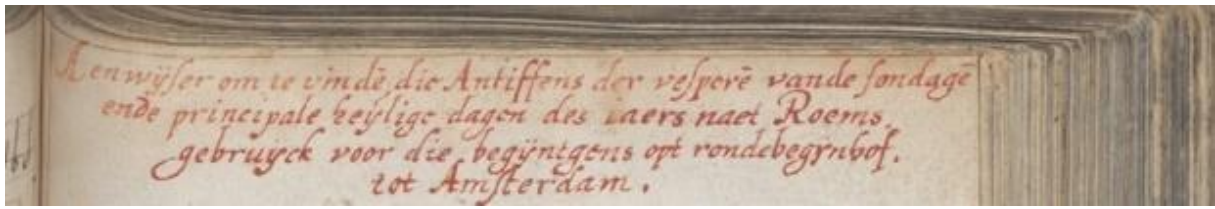 Aenwÿser om te vindē die Antiffens der vesperē vande sondagē
ende principale heÿlige dagen des iaers naet Roems
gebruÿck voor die begÿntgens opt rondebegÿnhof.
tot Amsterdam.